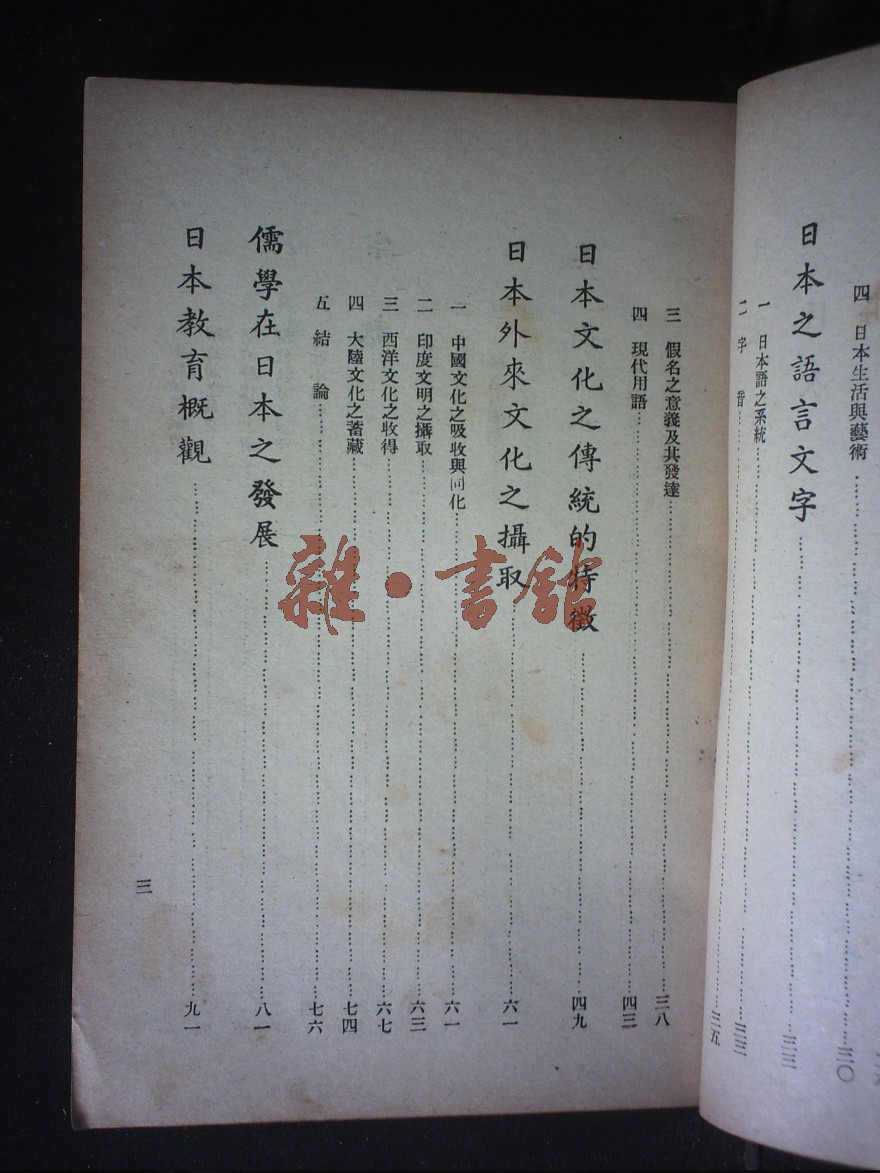 四　日本生活與藝術……三〇
日本之語言文字……三三
一　日本語之系統……三三
二　字　音……三五
三　假名之意義及其發達……三八
四　現代用語……四三
日本文化之傳統的特徵……四九
日本外來文化之攝取……六一
一　中國文化之吸收與同化……六一
二　印度文明之攝取……六三
三　西洋文化之收得……六七
四　大陸文化之蓄藏……七四
五　結　論……七六
儒學在日本之發展……八一
日本教育概觀……九一
三
雜·書館